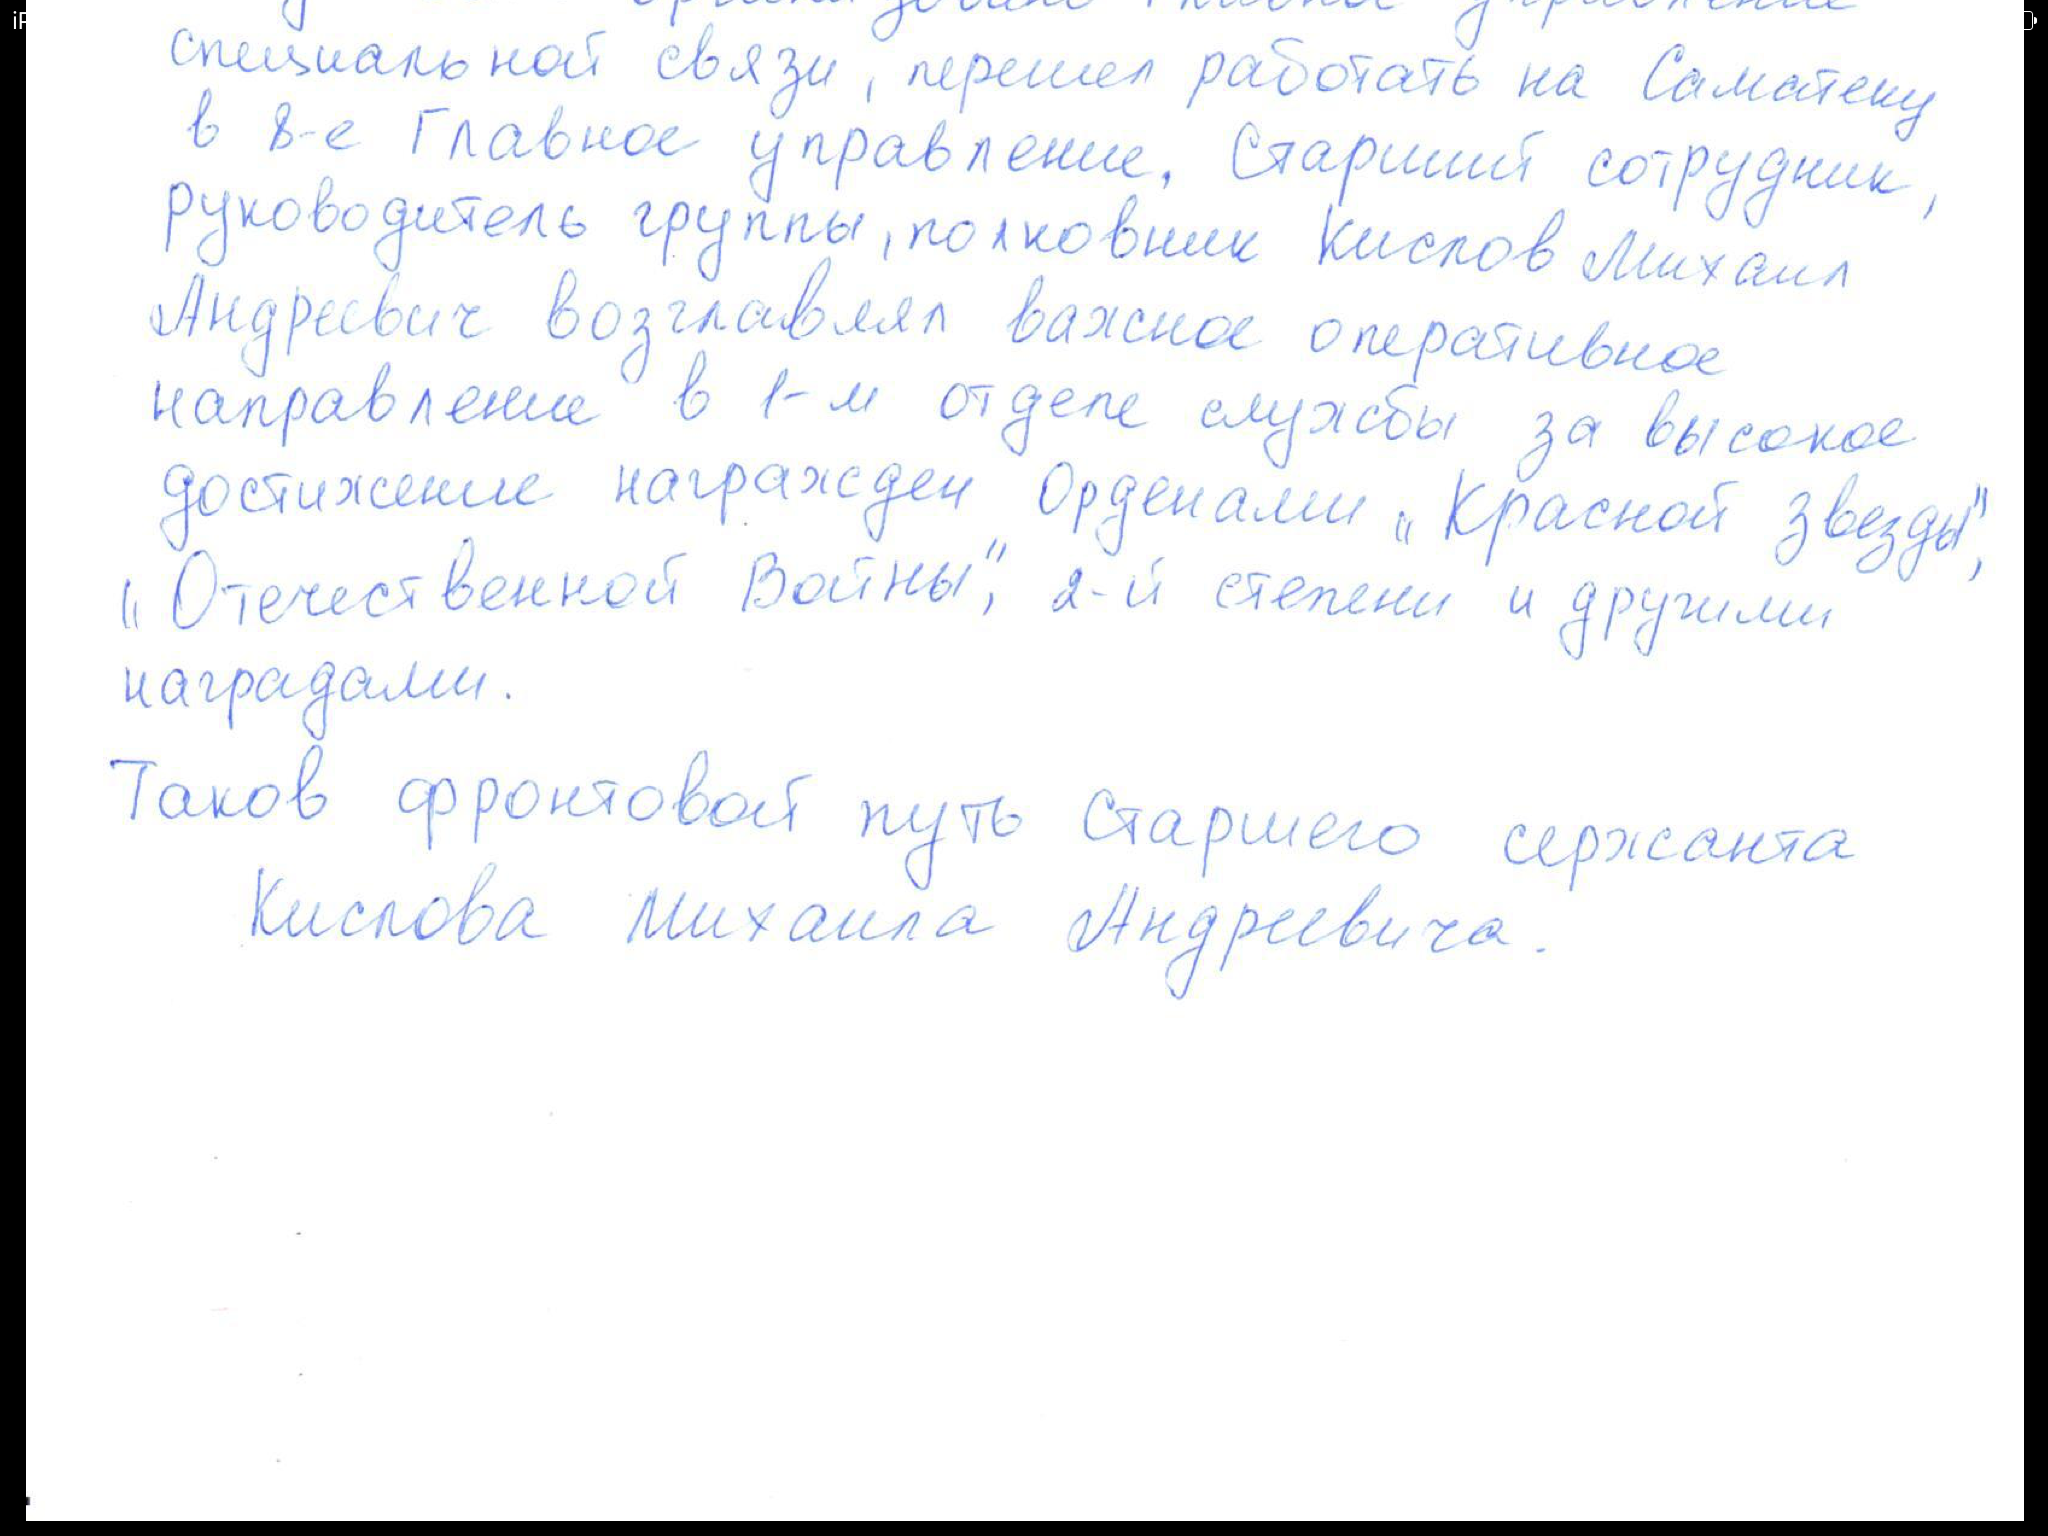 специальной связи, перешел работать на Самотеку
в 8-е Главное управление. Старший сотрудник,
руководитель группы, полковник Кислов Михаил
Андреевич возглавлял важное оперативное
направление в 1-м отделе службы за высокое
достижение награжден Орденами „Красной Звезды",
„Отечественной Войны", 2-й степени и другими
наградами.
Таков фронтовой путь Старшего сержанта
Кислова Михаила Андреевича.